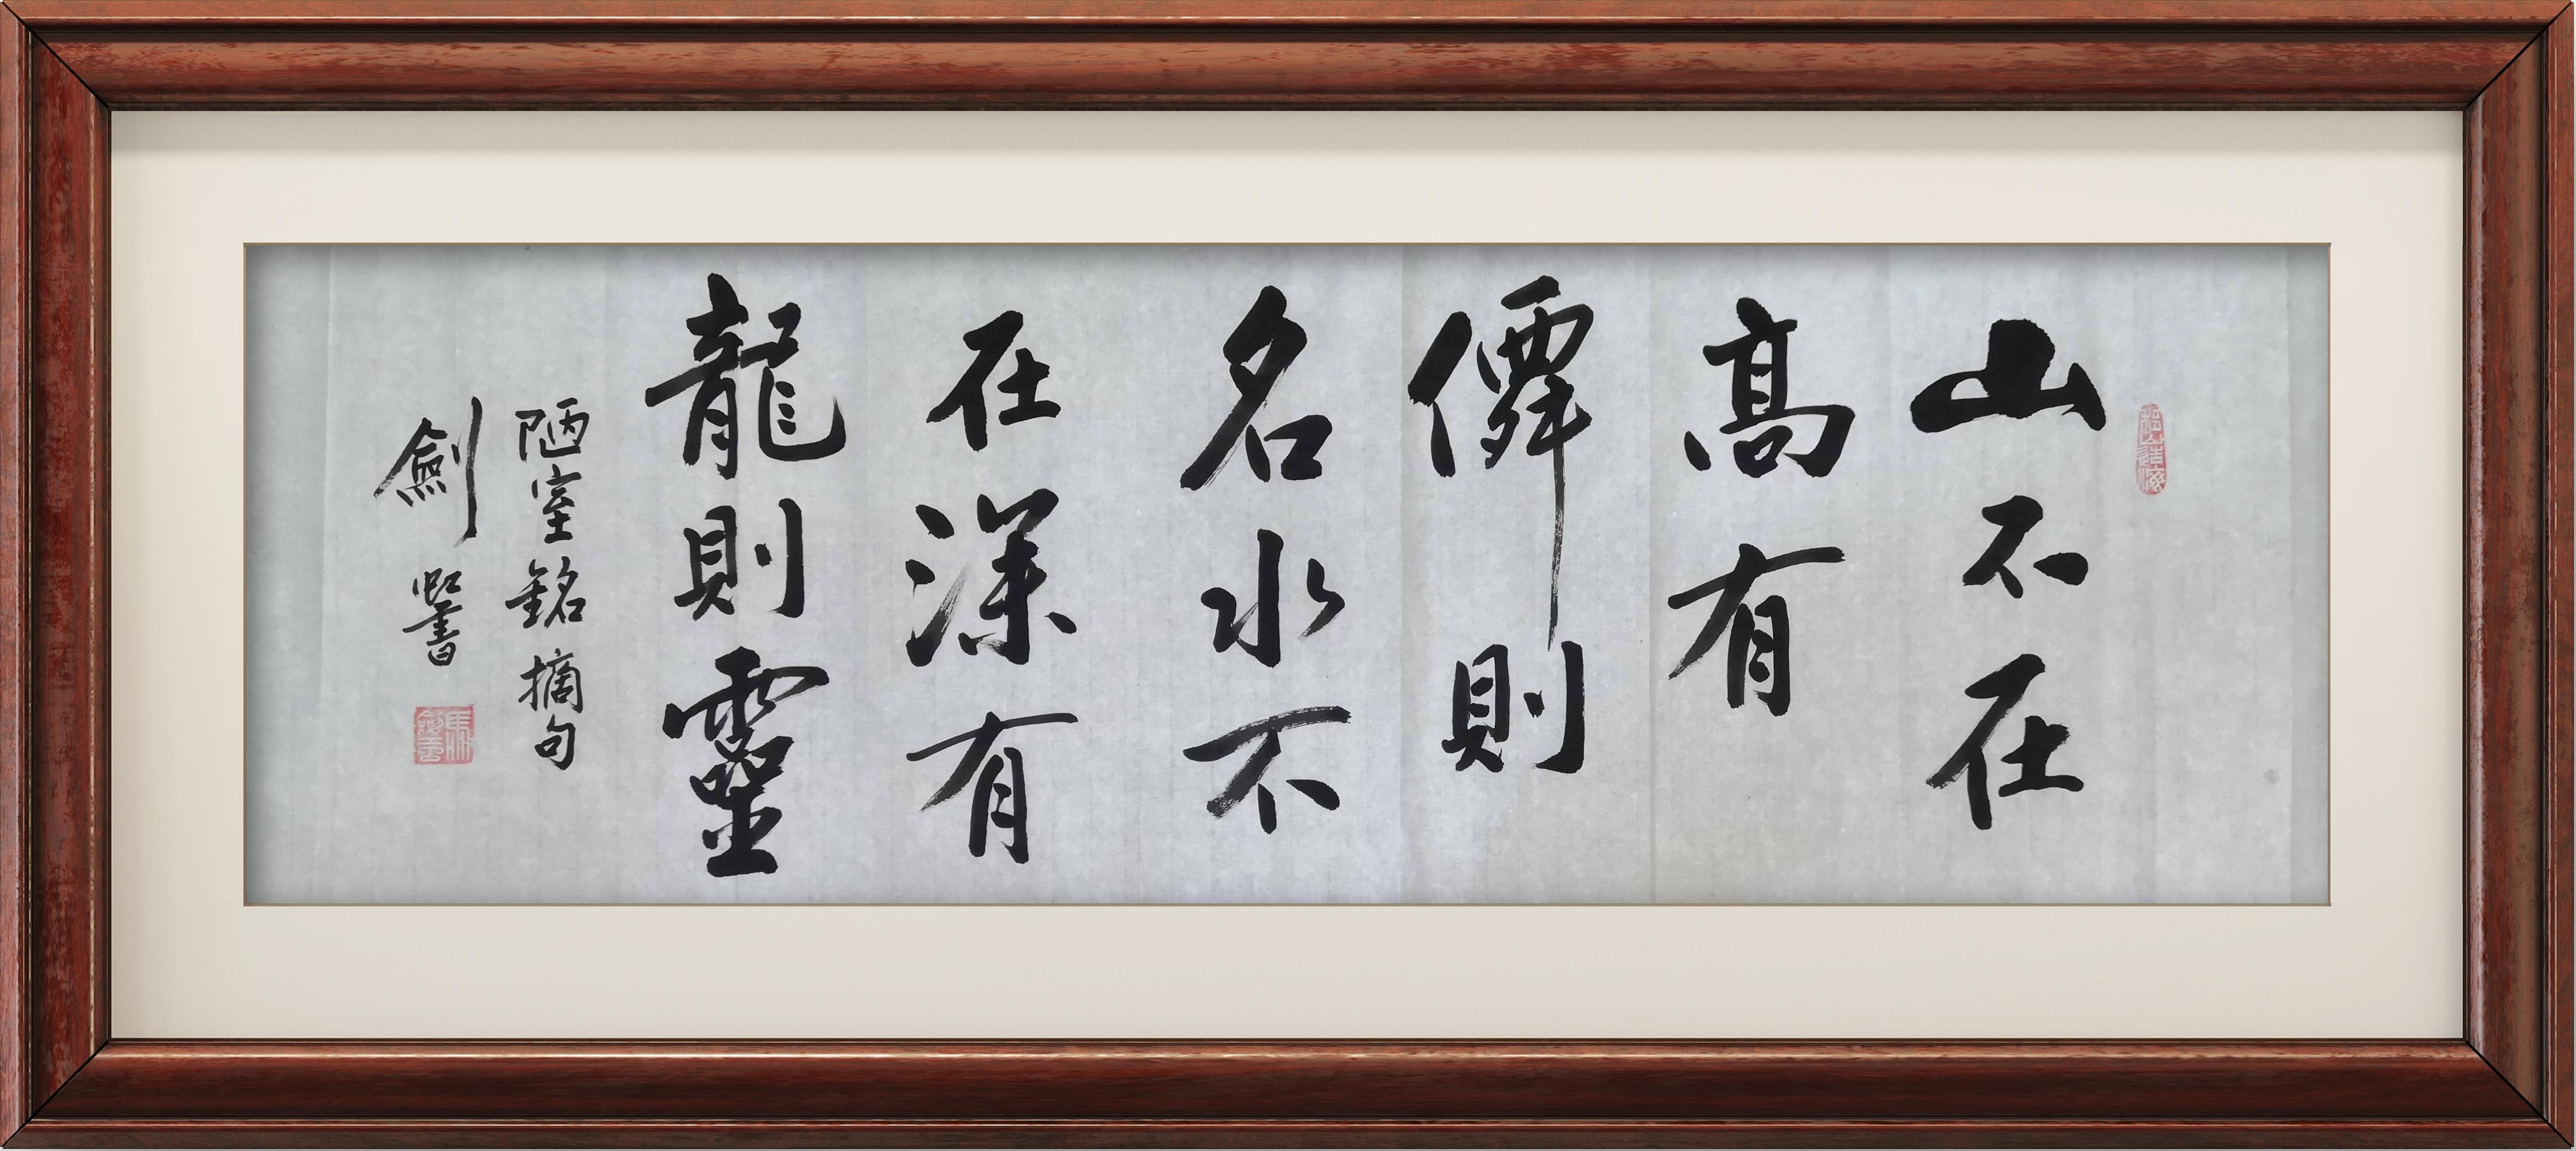 山不在
髙有
僊則
名水不
在深有
龍則靈
陋室銘摘句
劍虹書